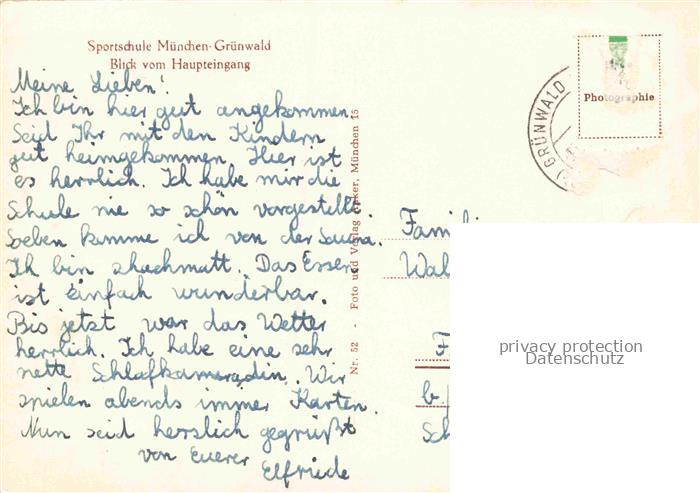 Sportschule München-Grünwald
Blick vom Haupteingang
Meine Lieben!
Ich bin hier gut angekommen.
Seid Ihr mit den Kindern
gut heimgekommen. Hier ist
es herrlich. Ich habe mir die
Schule nie so schön vorgestellt.
Soeben komme ich von der Sauna.
Ich bin schachmatt. Das Essen
ist einfach wunderbar.
Bis jetzt war das Wetter
herrlich. Ich habe eine sehr
nette Schlafkameradin. Wir
spielen abends immer Karten.
Nun seid herzlich gegrüßt
von Euerer
Elfriede
Nr. 52 - Foto und Verlag München 15
GRÜNWALD
Photographie
Famili
Wal
b.
Sch
privacy protection
Datenschutz